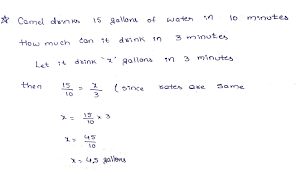 * Camel drinks 15 gallons of water in 10 minutes
How much can it drink in 3 minutes
Let it drink "x" gallons in 3 minutes
then 15/10 = x/3 (since rates are same
x = 15/10 × 3
x = 45/10
x = 4.5 gallons